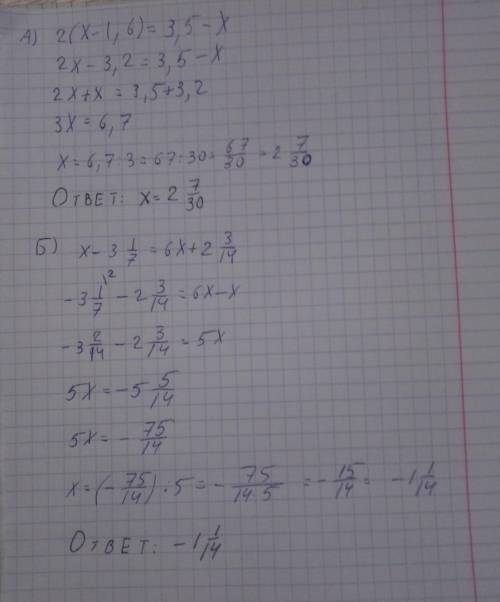 А) 2(x-1,6)=3,5-x
2x-3,2=3,5-x
2x+x=3,5+3,2
3x=6,7
x=6,7:3=67:30=67/30=2 7/30
Ответ: x=2 7/30
Б) x-3 1/7=6x+2 3/14
-3 1/7\2 -2 3/14=6x-x
-3 2/14-2 3/14=5x
5x=-5 5/14
5x=-75/14
x=(-75/14):5=-75/14·5=-15/14= -1 1/14
Ответ: -1 1/14